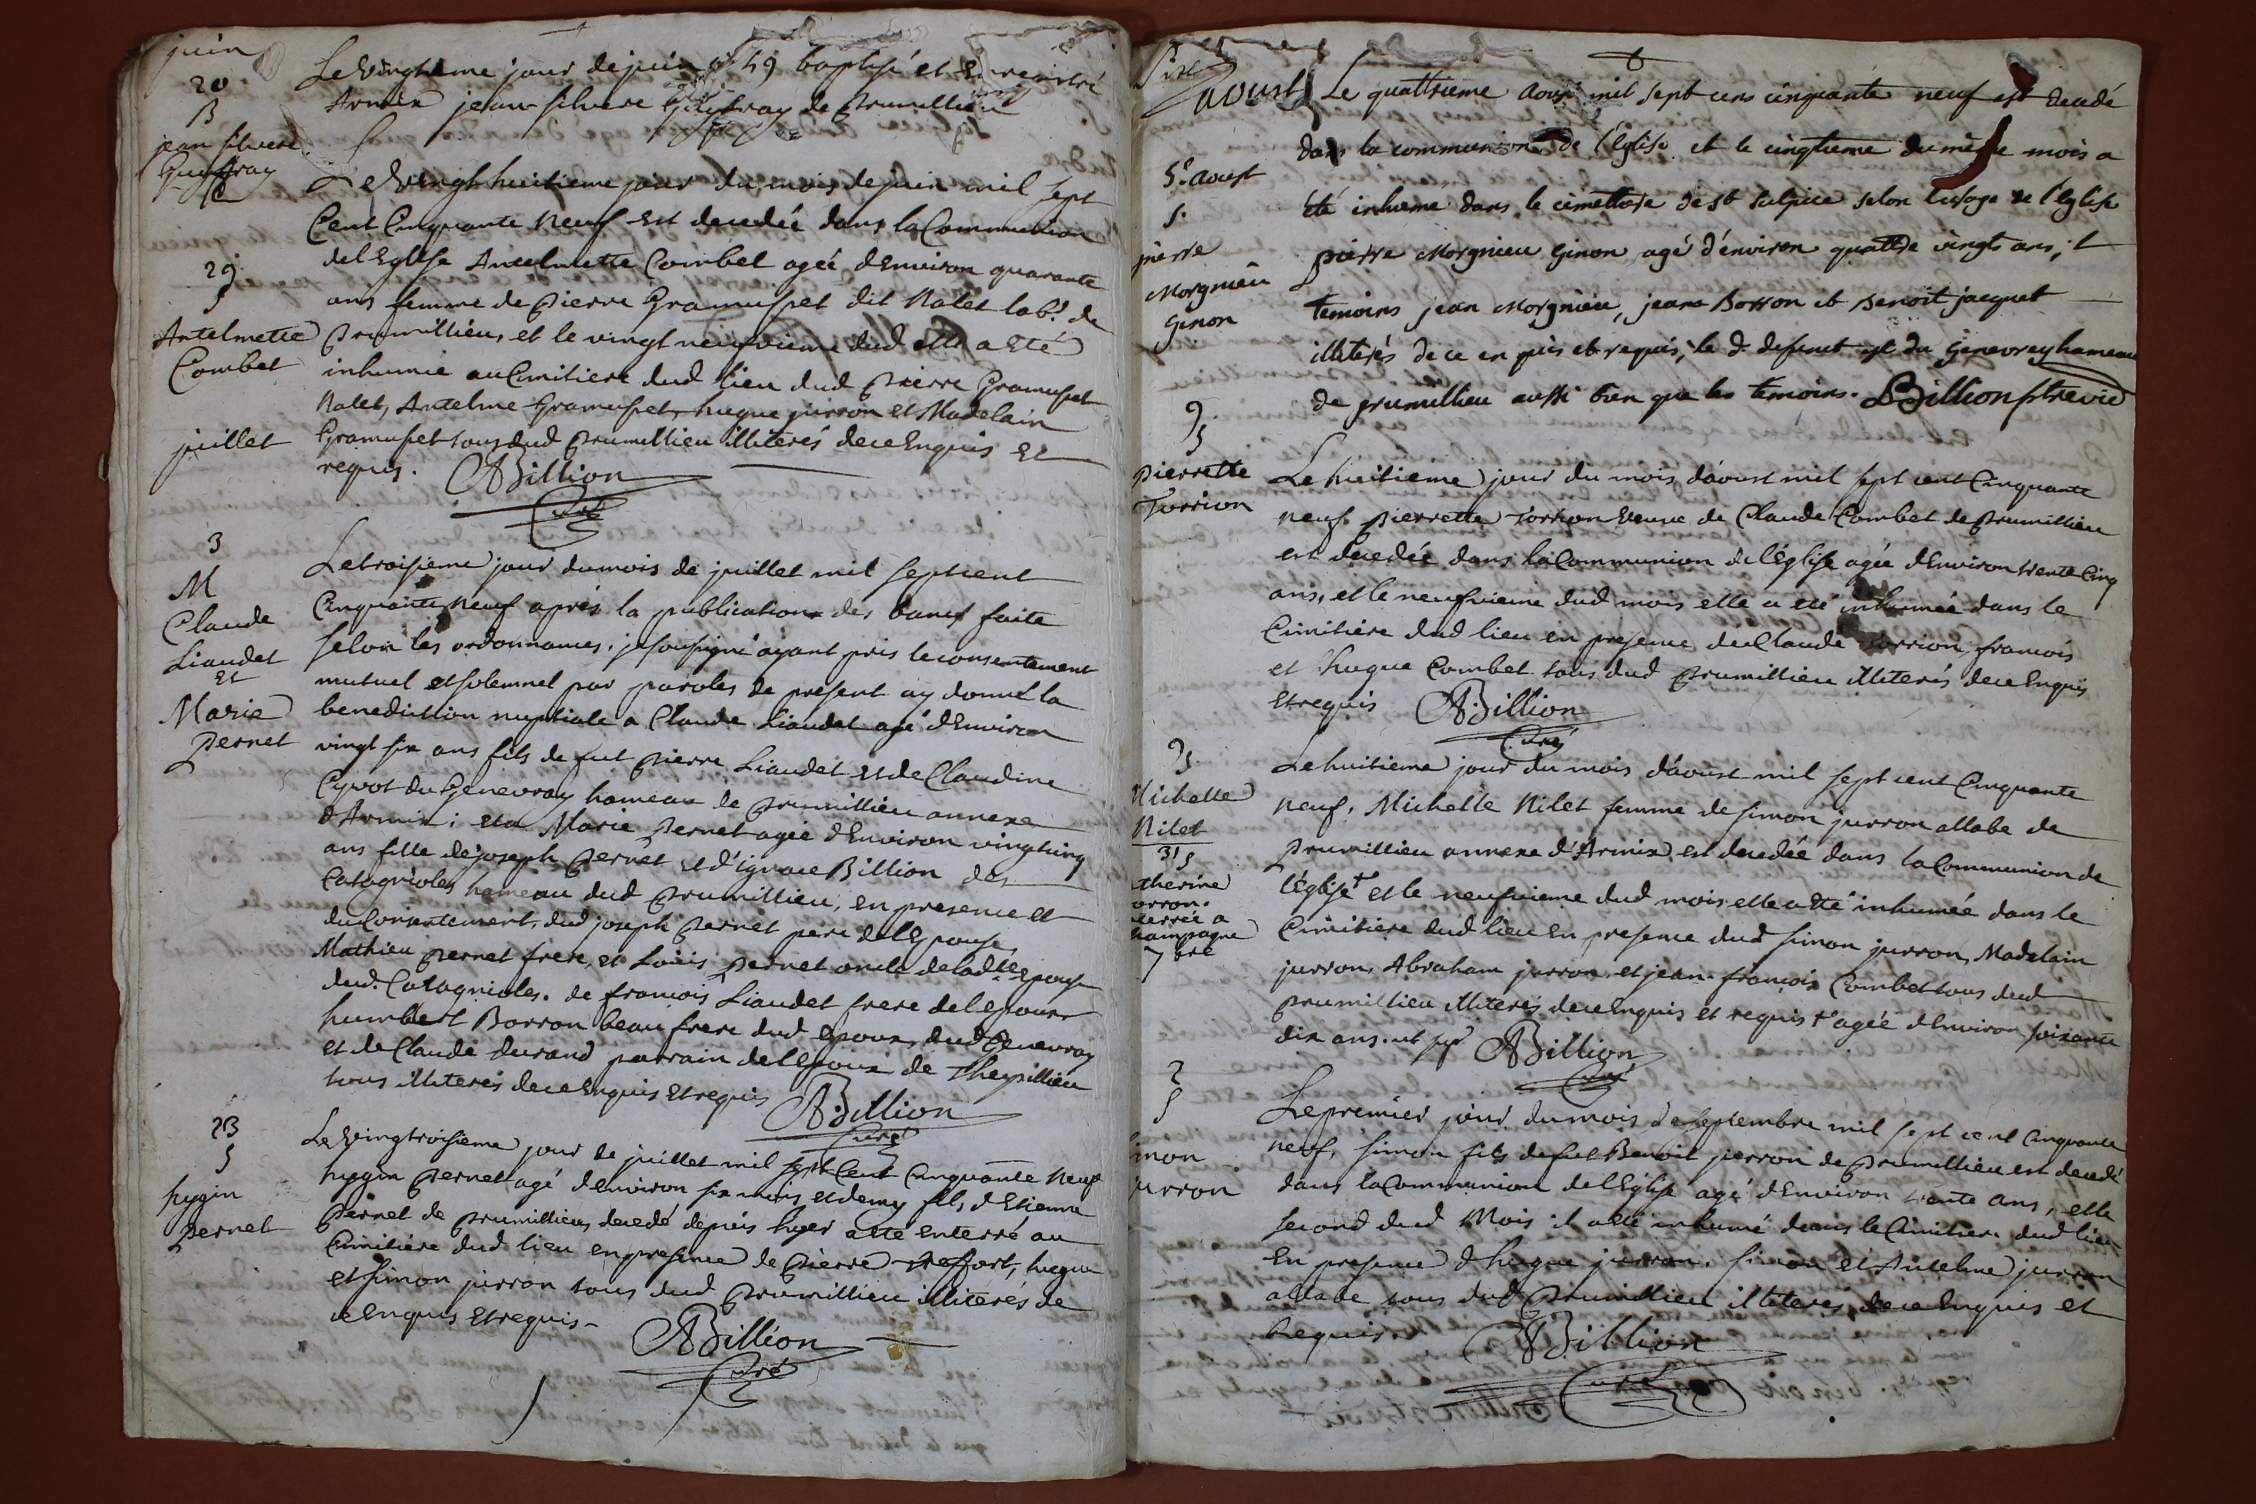 juin
20
B
jean silvere
Guyffray
Le Vingtieme jour de juin 1749 baptisé et enregistré
Armix jean silvere Guyffray de prumillieu
29
S
Antelmette
Combet
Le Vingt huitieme jour du mois de juin mil sept
Cent Cinquante Neuf est decedée dans la Communion
de l Eglise Antelmette Combet agée d Environ quarante
ans femme de pierre Gramuset dit Nalet lab.r de
prumillieu, et le vingt neufvieme dud elle a eté
inhumée au Cimitiere dud lieu dud pierre Gramuset
Nalet, Antelme Gramuset, hugue jurron et Madelain
Gramuset tous dud prumillieu illiterés de ce Enquis Et
requis. ABillion
Curé
juillet
3
M
Claude
Liaudet
Et
Marie
Pernet
Le troisieme jour du mois de juillet mil sept cent
Cinquante Neuf aprés la publication des bancs faite
selon les ordonnances, je soussigné ayant pris le consentement
mutuel et solemnel par paroles de present ay donné la
benediction nuptiale a Claude Liaudet agé d Environ
vingt six ans fils de fut pierre Liaudet et de Claudine
Cyvot du Genevray hameau de prumillieu annexe
d Armix; et a Marie pernet agée d Environ vingt cinq
ans fille de joseph pernet et d'ignace Billion des
Catagnioles hameau dud prumillieu, en presence et
du Consentement, dud joseph pernet pere de l Epouse,
Mathieu pernet frere, et Loüis pernet oncle de lad.te epouse
dud. Catagnioles. de francois Liaudet frere de l epoux
humbert Borron beau frere dud epoux, dud Genevray
et de Claude durand parrain de l Epoux de Theysillieu
tous illiterés de ce Enquis Et requis ABillion
Curé
23
S
hygin
Pernet
Le Vingtroisieme jour de juillet mil sept Cent Cinquante Neuf
hygin pernet agé d environ six mois et demy fils d Etienne
pernet de prumillieu, decedé depuis hyer a eté enterré au
Cimitiere dud lieu en presence de pierre treffort, hugue
et simon jurron tous dud prumillieu illiterés de
ce Enquis Et requis - ABillion
Curé
aoust
5.e aoust
S.
pierre
Morgnieu
Ginon
Le quattrieme aoust mil sept cens cinquante neuf est decedé
dans la communion de l'église et le cinqtieme du même mois a
été inhumé dans le cimettiere de st sulpice selon lusage de l'église
pierre Morgnieu Ginon agé d'environ quattre vingts ans,
temoins jean Morgnieu, jean Borron et Benoit jacquet
illiterés de ce en quis et requis; le d. defunct est du Genevrey hameau
de prumillieu aussi bien que les temoins. Billion p.tre vic
9.
S
pierrette
Torrion
Le huitieme jour du mois d'aoust mil sept cent Cinquante
neuf. pierrette Torrion veuve de Claude Combet de prumillieu
est decedée dans la Communion de l'église agée d Environ trente Cinq
ans, et le neufvieme dud mois elle a eté inhumée dans le
Cimitiere dud lieu en presence de Claude Torrion, francois
et hugue Combet tous dud prumillieu illiterés de ce Enquis
et requis ABillion
Curé
9.
S.
Michelle
Nilet
31 S
therine
orron.
terrée a
hampagne
7bre
Le huitieme jour du mois d'aoust mil sept cent Cinquante
neuf, Michelle Nilet femme de simon jurron allabe de
prumillieu annexe d'Armix est decedée dans la Communion de
l'église + et le neufvieme dud mois elle a eté inhumée dans le
Cimitiere dud lieu En presence dud simon jurron, Madelain
jurron, Abraham jurron, et jean francois Combet tous dud
prumillieu illiterés de ce Enquis et requis + agée d Environ soixante
dix ans. ut sup ABillion
Curé
2
S
imon
urron
Le premier jour du mois de septembre mil sept cent Cinquante
neuf, simon fils de fut Benoit jurron de prumillieu est decedé
dans la Communion de l Eglise agé d Environ trente ans, et le
second dud Mois il a eté inhumé dans le Cimitiere dud lieu
En presence d hugue jurron, simon et Antelme jurron
allabe tous dud prumillieu illiterés de ce Enquis et
Requis. ABillion
Curé